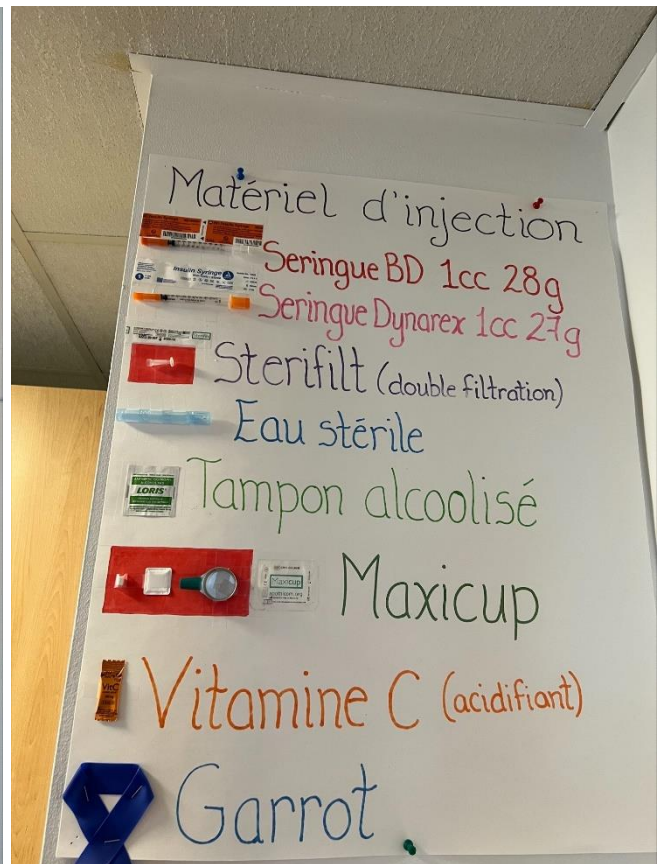 Matériel d'injection
Seringue BD 1cc 28g
Insulin Syringe
Seringue Dynarex 1cc 27g
Sterifilt (double filtration)
Eau stérile
LORIS
Tampon alcoolisé
Maxicup
Maxicup
VitC
Vitamine C (acidifiant)
Garrot